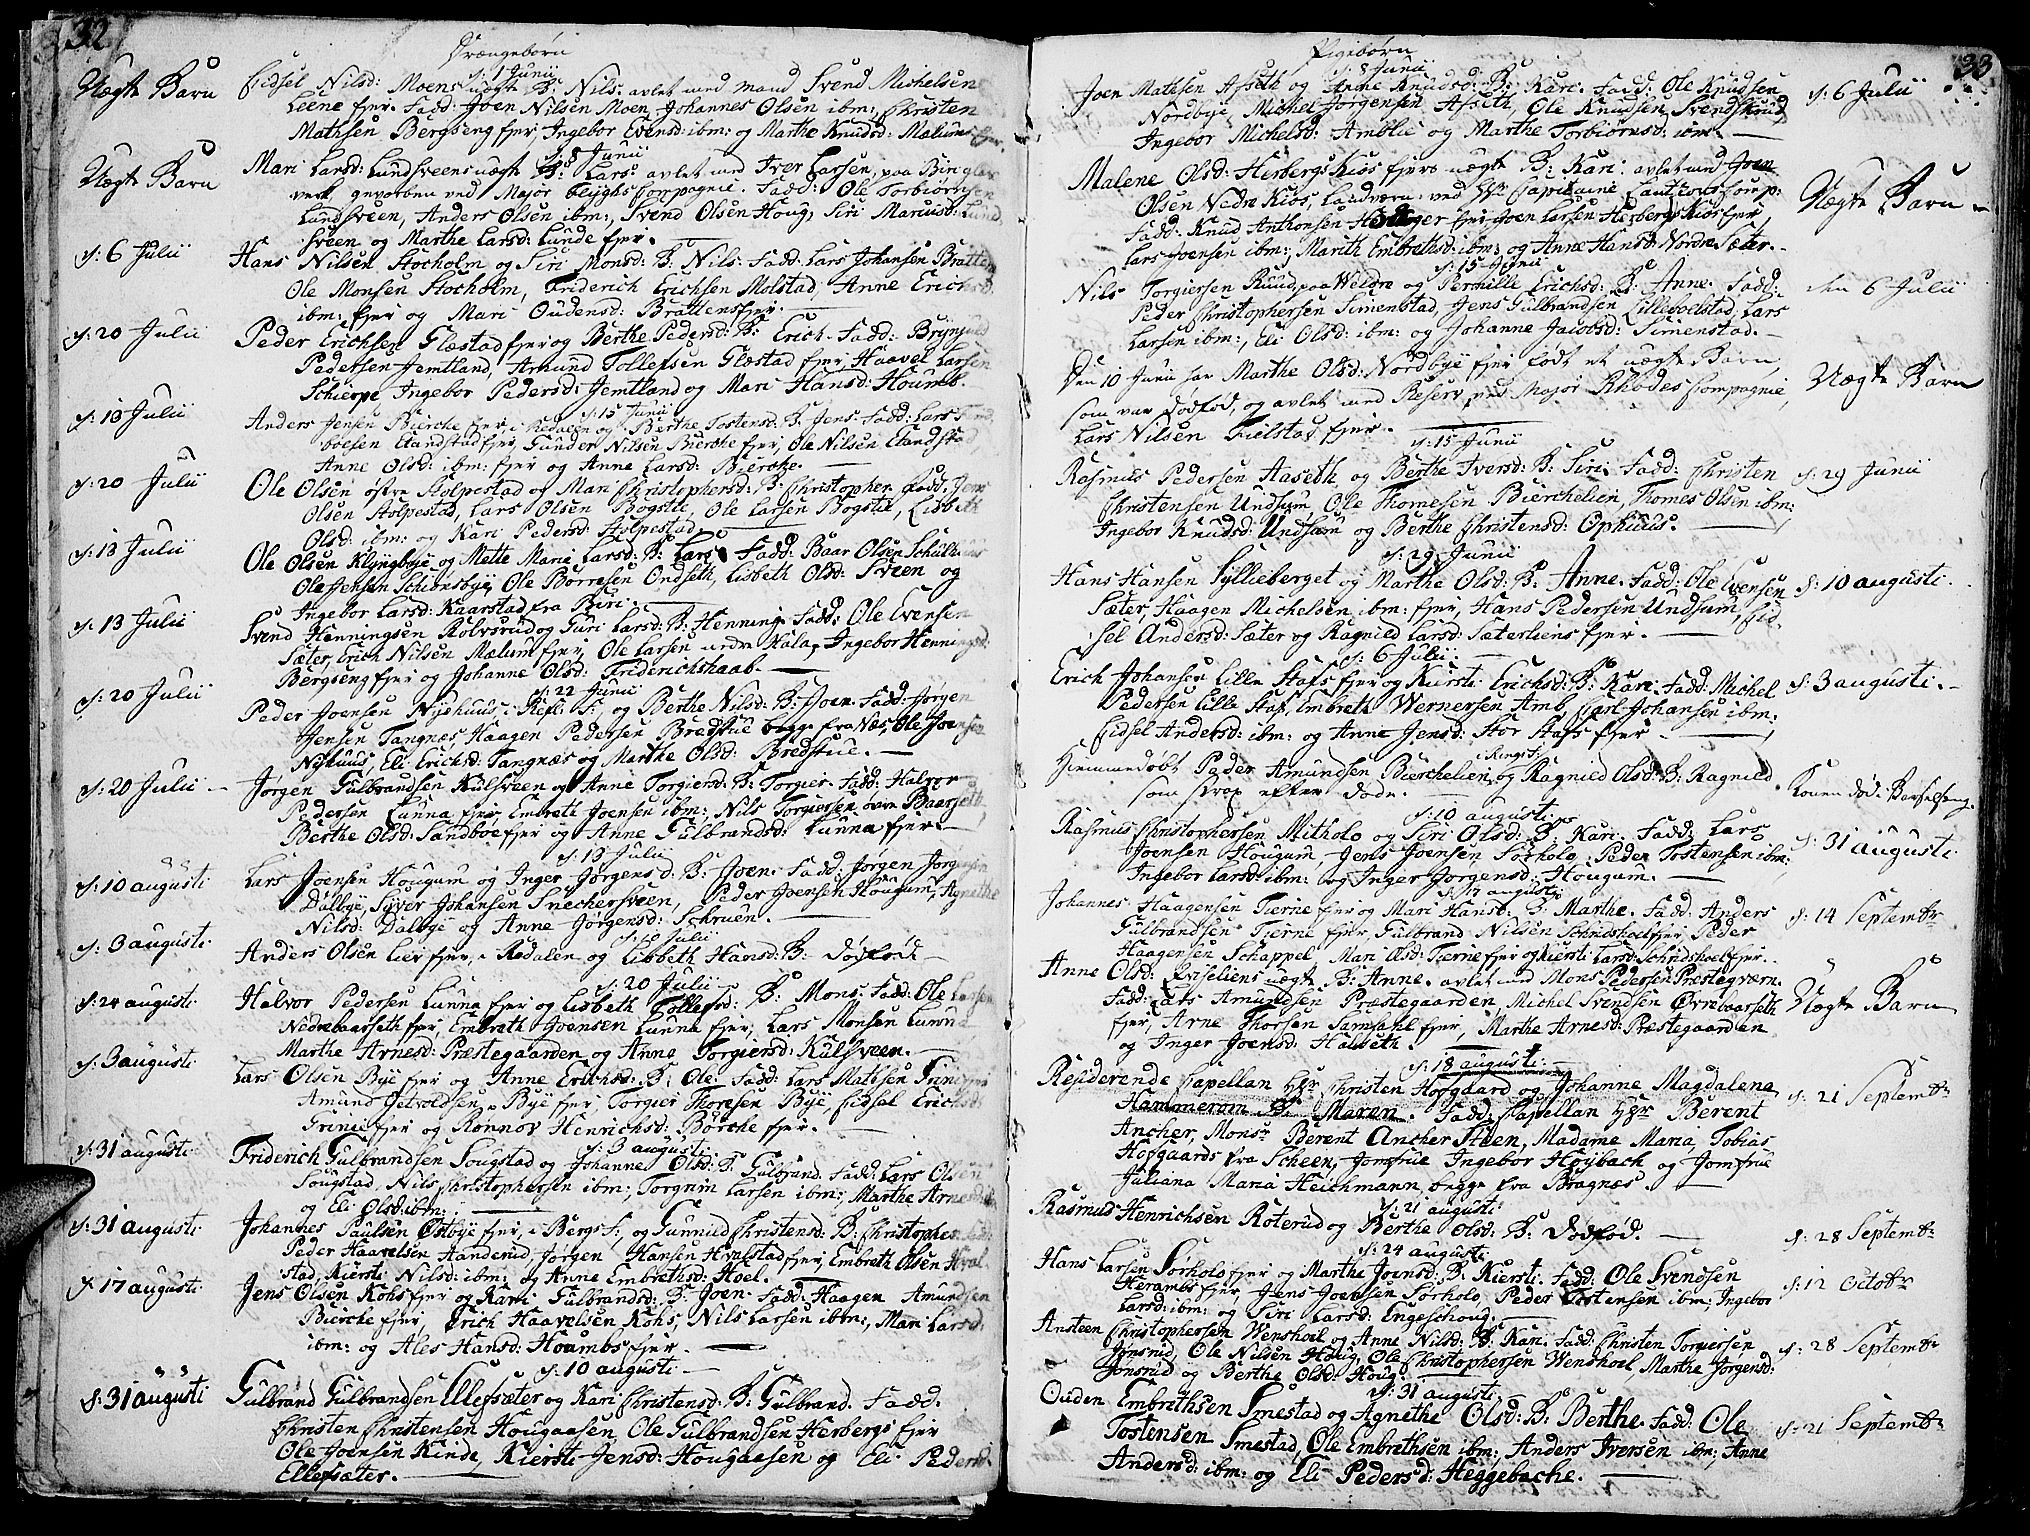 32
Drængebørn
d: 1 Junii
Uægte Barn
Eidsel Nilsd: Moens uægte B: Nils avlet med mand Svend Michelsen
Leene fjer. Fadd: Joen Nilsen Moen, Johannes Olsen ibm:, Christen
Mathsen Bergseng fjer, Ingebor Evensd: ibm: og Marthe Knudsd: Mælums fjer.
d: 8 Junii
Uægte Barn
Mari Larsd: Lundsveens uægte B: Lars avlet med Iver Larsen, paa Biri glas
verk gevorben ved Major Bleyghs Compagnie. Fadd: Ole Torbiørnsen
Lundsveen, Anders Olsen ibm:, Svend Olsen Houg, Siri Marcusd: Lund
sveen og Marthe Larsd: Lunde fjer.
d: 6 Julii
Hans Nilsen Stocholm og Siri Monsd: B: Nils. Fadd: Lars Johansen Bratten
Ole Monsen Stocholm, Friderich Erichsen Molstad, Anne Erichsd:
ibm: fjer og Mari Oudensd: Brattens fjer.
d: 20 Julii
Peder Erichsen Glæstad fjer og Berthe Pedersd: B: Erich. Fadd: Brynjuld
Pedersen Jemtland, Amund Tollefsen Glæstad fjer, Haavel Larsen
Schierpe Ingebor Pedersd: Jemtland og Mari Hansd: Houmb.
d: 15 Junii
d: 13 Julii
Anders Jensen Biercke fjer i Redalen og Berthe Tostensd: B: Jens. Fadd: Lars
Clandstad fjer, Gunder Nilsen Biercke fjer, Ole Nilsen Clandstad
Anne Olsd: ibm: fjer og Anne Larsd: Biercke.
d: 20 Julii
Ole Olsen østre Stolpestad og Mari Christophersd: B: Christopher. Fadd: Jens
Olsen Stolpestad, Lars Olsen Bogstie, Ole Larsen Bogstie, Lisbeth
Olsd: ibm: og Kari Pedersd: Stolpestad.
d: 13 Julii
Ole Olsen Klyngbøye og Mette Marie Larsd: B: Lars. Fadd: Baar Olsen
Ole Jensen Schiønsbye, Ole Børresen Ondseth, Lisbeth Olsd: Sveen og
Ingebor Larsd: Kaarstad fra Biri.
d: 13 Julii
Svend Henningsen Rolvsrud og Guri Larsd: B: Henning. Fadd: Ole Evensen
Sæter, Erich Nilsen Mælum fjer, Ole Larsen nedre Kala, Ingebor Henningsd:
Bergseng fjer og Johanne Olsd: Friderichshaab.
d: 22 Junii
d: 20 Julii
Peder Joensen Nyshuus og Berthe Nilsd: B: Joen. Fadd: Jørgen
Jensen Tangnæs, Haagen Pedersen Bredstue begge fra Næs, Ole Joensen
Nyshuus, Eli Erichsd: Tangnæs og Marthe Olsd: Bredstue.
d: 20 Julii
Jørgen Gulbrandsen Kulsveen og Anne Torgiersd: B: Torgier. Fadd: Halvor
Pedersen Lunna fjer, Embreth Joensen ibm:, Nils Torgiersen øvre Baarseth,
Berthe Olsd: Sandboe fjer og Anne Gulbrandsd: Lunna fjer.
d: 13 Julii
d: 10 augusti
Lars Joensen Hougum og Inger Jørgensd: B: Joen. Fadd: Jørgen Jørgensen
Dalbye, Syver Johansen Sneckersveen, Peder Joensen Hougum, Agnethe
Nilsd: Dalbye og Anne Jørgensd: Schruen.
d: 10 Julii
d: 3 augusti
Anders Olsen Lier fjer, i Redalen og Lisbeth Hansd: B: Dødfød.
d: 20 Julii
d: 24 augusti
Halvor Pedersen Lunna fjer og Lisbeth Tollefsd: B: Mons. Fadd: Ole Larsen
Nedrebaarseth fjer, Embreth Joensen Lunna fjer, Lars Monsen Lunna
Marthe Arnesd: Præstegaarden og Anne Torgiersd: Kulsveen.
d: 3 augusti
Lars Olsen Bye fjer og Anne Erichsd: B: Ole. Fadd: Lars Mathsen Grini fjer
Amund Jetvoldsen, Bye fjer, Torgier Thoresen Bye Eidsel Erichsd:
Grini fjer og Ronnov Henrichsd: Børche fjer.
d: 3 augusti
d: 31 augusti
Friderich Gulbrandsen Sougstad og Johanne Olsd: B: Gulbrand. Fadd: Lars Olsen
Sougstad, Nils Christophersen ibm:, Torgrim Larsen ibm:, Marthe Arnesd:
og Eli Olsd: ibm:
d: 31 augusti
Johannes Paulsen Østbye fjer, i Bergs S: og Gunnild Christensd: B: Christopher
Peder Haavelsen Aanderud, Jørgen Hansen Hvalstad fjer, Embreth Olsen Hval
stad, Kiersti Nilsd: ibm: og Anne Embrethsd: Hoel.
d: 17 augusti
Jens Olsen Kohs fjer og Kari Gulbrandsd: B: Joen. Fadd: Haagen Amundsen
Biercke fjer, Erich Haavelsen Kohs, Nils Larsen ibm:, Mari Larsd:
ibm: og Ales Hansd: Houmbs fjer.
d: 10 augusti
d: 31 augusti
Gulbrand Gulbrandsen Ellefsæter og Kari Christensd: B: Gulbrand. Fadd.
Christen Christensen Hougaasen, Ole Gulbrandsen Herbergs fjer
Ole Joensen Kinde, Kiersti Jensd: Hougaasen og Eli Pedersd:
Ellefsæter.
33
Pigebørn
d: 8 Junii
Joen Mathsen Afseth og Anne Knudsd: B: Kari. Fadd: Ole Knudsen
Nordbye, Michel Jørgensen Afseth, Ole Knudsen Svendskrud
Ingebor Michelsd: Amblie og Marthe Torbiørnsd: ibm:
d: 6 Julii
Malene Olsd: Herbergs Kios fjers uægte B: Kari avlet med Joen
Olsen Nedre Kios, Landværn: ved Hr Capitaine Lautious Comp:
Fadd: Knud Anthonsen fjer, Joen Larsen Herbergs Kios fjer,
Lars Joensen ibm:, Marith Embrethsd: ibm: og Anne Hansd: Nordre Sæter.
Uægte Barn
d: 15 Junii
Nils Torgiersen Ruud paa Weldre og Pernille Erichsd: B: Anne. Fadd:
Peder Christophersen Simenstad, Jens Gulbrandsen Lilleboelstad, Lars
Larsen ibm:, Eli Olsd: ibm: og Johanne Jacobsd: Simenstad.
den 6 Julii
Den 10 Junii har Marthe Olsd: Nordbye fjer født et uægte Barn,
som var dødfød, og avlet med Reserv ved Major Rhodes Compagnie,
Lars Nilsen Fielstad fjer.
Uægte Barn
d: 15 Junii
Rasmus Pedersen Aaseth, og Berthe Iversd: B: Siri. Fadd: Christen
Christensen Undsum, Ole Thomesen Bierchelien, Thomes Olsen ibm:,
Ingebor Knudsd: Undsum og Berthe Christensd: Ophuus.
d: 29 Junii
d: 29 Junii
Hans Hansen Syllieberget og Marthe Olsd: B: Anne. Fadd: Ole Evensen
Sæter, Haagen Michelsen ibm: fjer, Hans Pedersen Undsum, Eid-
sel Andersd: Sæter og Ragnild Larsd: Sæterliens fjer.
d: 10 augusti.
d: 6 Julii
Erich Johansen Lille Hafs fjer og Kiersti Erichsd: B: Kari. Fadd: Michel
Pedersen Lille Haf, Embreth Wernersen Amb, Carl Johansen ibm:
Eidsel Andersd: ibm: og Anne Jensd: Stor Hafs fjer.
d: 3 augusti.
Hiemmedøbt Peder Amundsen Bierchelien i Ringst: og Ragnild Olsd: B: Ragnild
som strax efter døde.
Konen død i Barselseng.
d: 10 augusti
Rasmus Christophersen Mitholo og Siri Olsd: B: Kari. Fadd: Lars
Joensen Hougum, Jens Joensen Sørholo, Peder Tostensen ibm:,
Ingebor Larsd: ibm: og Inger Jørgensd: Hougum.
d: 31 augusti
d: 17 augusti
Johannes Haagensen Tierne fjer og Mari Hansd: B: Marthe. Fadd: Anders
Gulbrandsen Tierne fjer, Gulbrand Nilsen Schridshoel fjer, Peder
Haagensen Schappel Mari Olsd: Tierne fjer og Kiersti Larsd: Schridshoel fjer.
d: 14 Septembr
Anne Olsd: Qviseliens uægte B: Anne. avlet med Mons Pedersen Prestegværn.
Fadd: Lars Amundsen Præstegaarden, Michel Svendsen Øvrebaarseth
fjer, Arne Thorsen Samsahl fjer, Marthe Arnesd: Præstegaarden
og Inger Joensd: Halseth.
Uægte Barn
d: 18 augusti
Residerende Capellan Hr Christen Hofgaard og Johanne Magdalena
Hammerom B: Maren. Fadd: Capellan Hr Berent
Ancher, Monsr Berent Ancher Steen, Madame Maria, Tobias
Hofgaards fra Scheen, Jomfrue Ingebor Høybach og Jomfrue
Juliana Maria Heichmann begge fra Bragnæs.
d: 21 Septembr
d: 21 augusti
Rasmus Henrichsen Roterud og Berthe Olsd: B: Dødfød.
d: 28 Septembr
d: 24 augusti
Hans Larsen Sørholo fjer og Marthe Joensd: B: Kiersti. Fadd: Ole Svendsen
Herambs fjer, Jens Joensen Sørholo, Peder Tostensen ibm:, Ingebor
Larsd: ibm: og Siri Larsd: Engeschoug.
d: 12 Octobr
Ansteen Christophersen Wenshoel og Anne Nilsd: B: Kari. Fadd: Christen Torgersen
Jonsrud, Ole Nilsen Houg, Ole Christophersen Wenshoel, Marthe Jørgensd:
Jonsrud og Berthe Olsd: Houg.
d: 28 Septembr
d: 31 augusti
Ouden Embrethsen Smestad og Agnethe Olsd: B: Berthe. Fadd: Ole
Tostensen Smestad, Ole Embrethsen ibm:, Anders Iversen ibm:, Anne
Andersd: ibm: og Eli Pedersd: Heggebache.
d: 21 Septembr